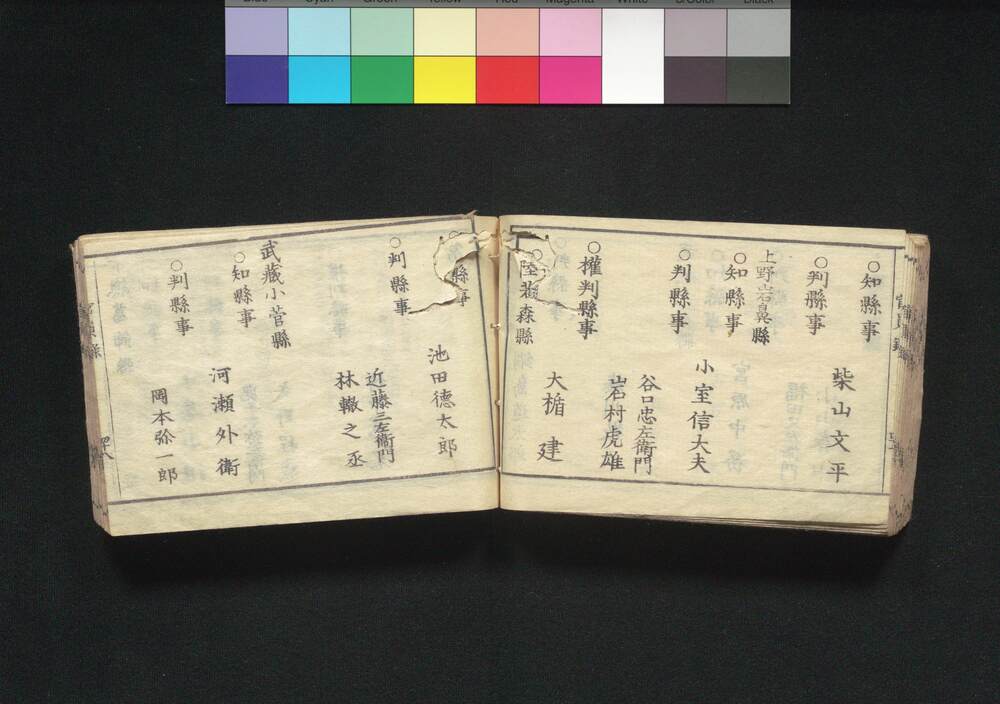 Blue Cyan Green Yellow Red Magenta White 3/Color Black
○知縣事
柴山文平
○判縣事
上野岩鼻縣
○知縣事
小室信大夫
○判縣事
谷口忠左衞門
岩村虎雄
○權判縣事
大楯建
陸前
森縣
縣事
池田德太郎
○判縣事
近藤三左衞門
林轍之丞
武藏小菅縣
○知縣事
河瀬外衞
○判縣事
岡本弥一郎